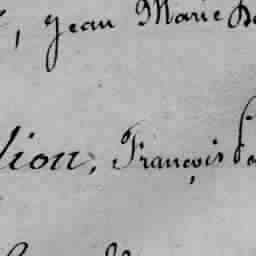 , Jean Marie
lion, François